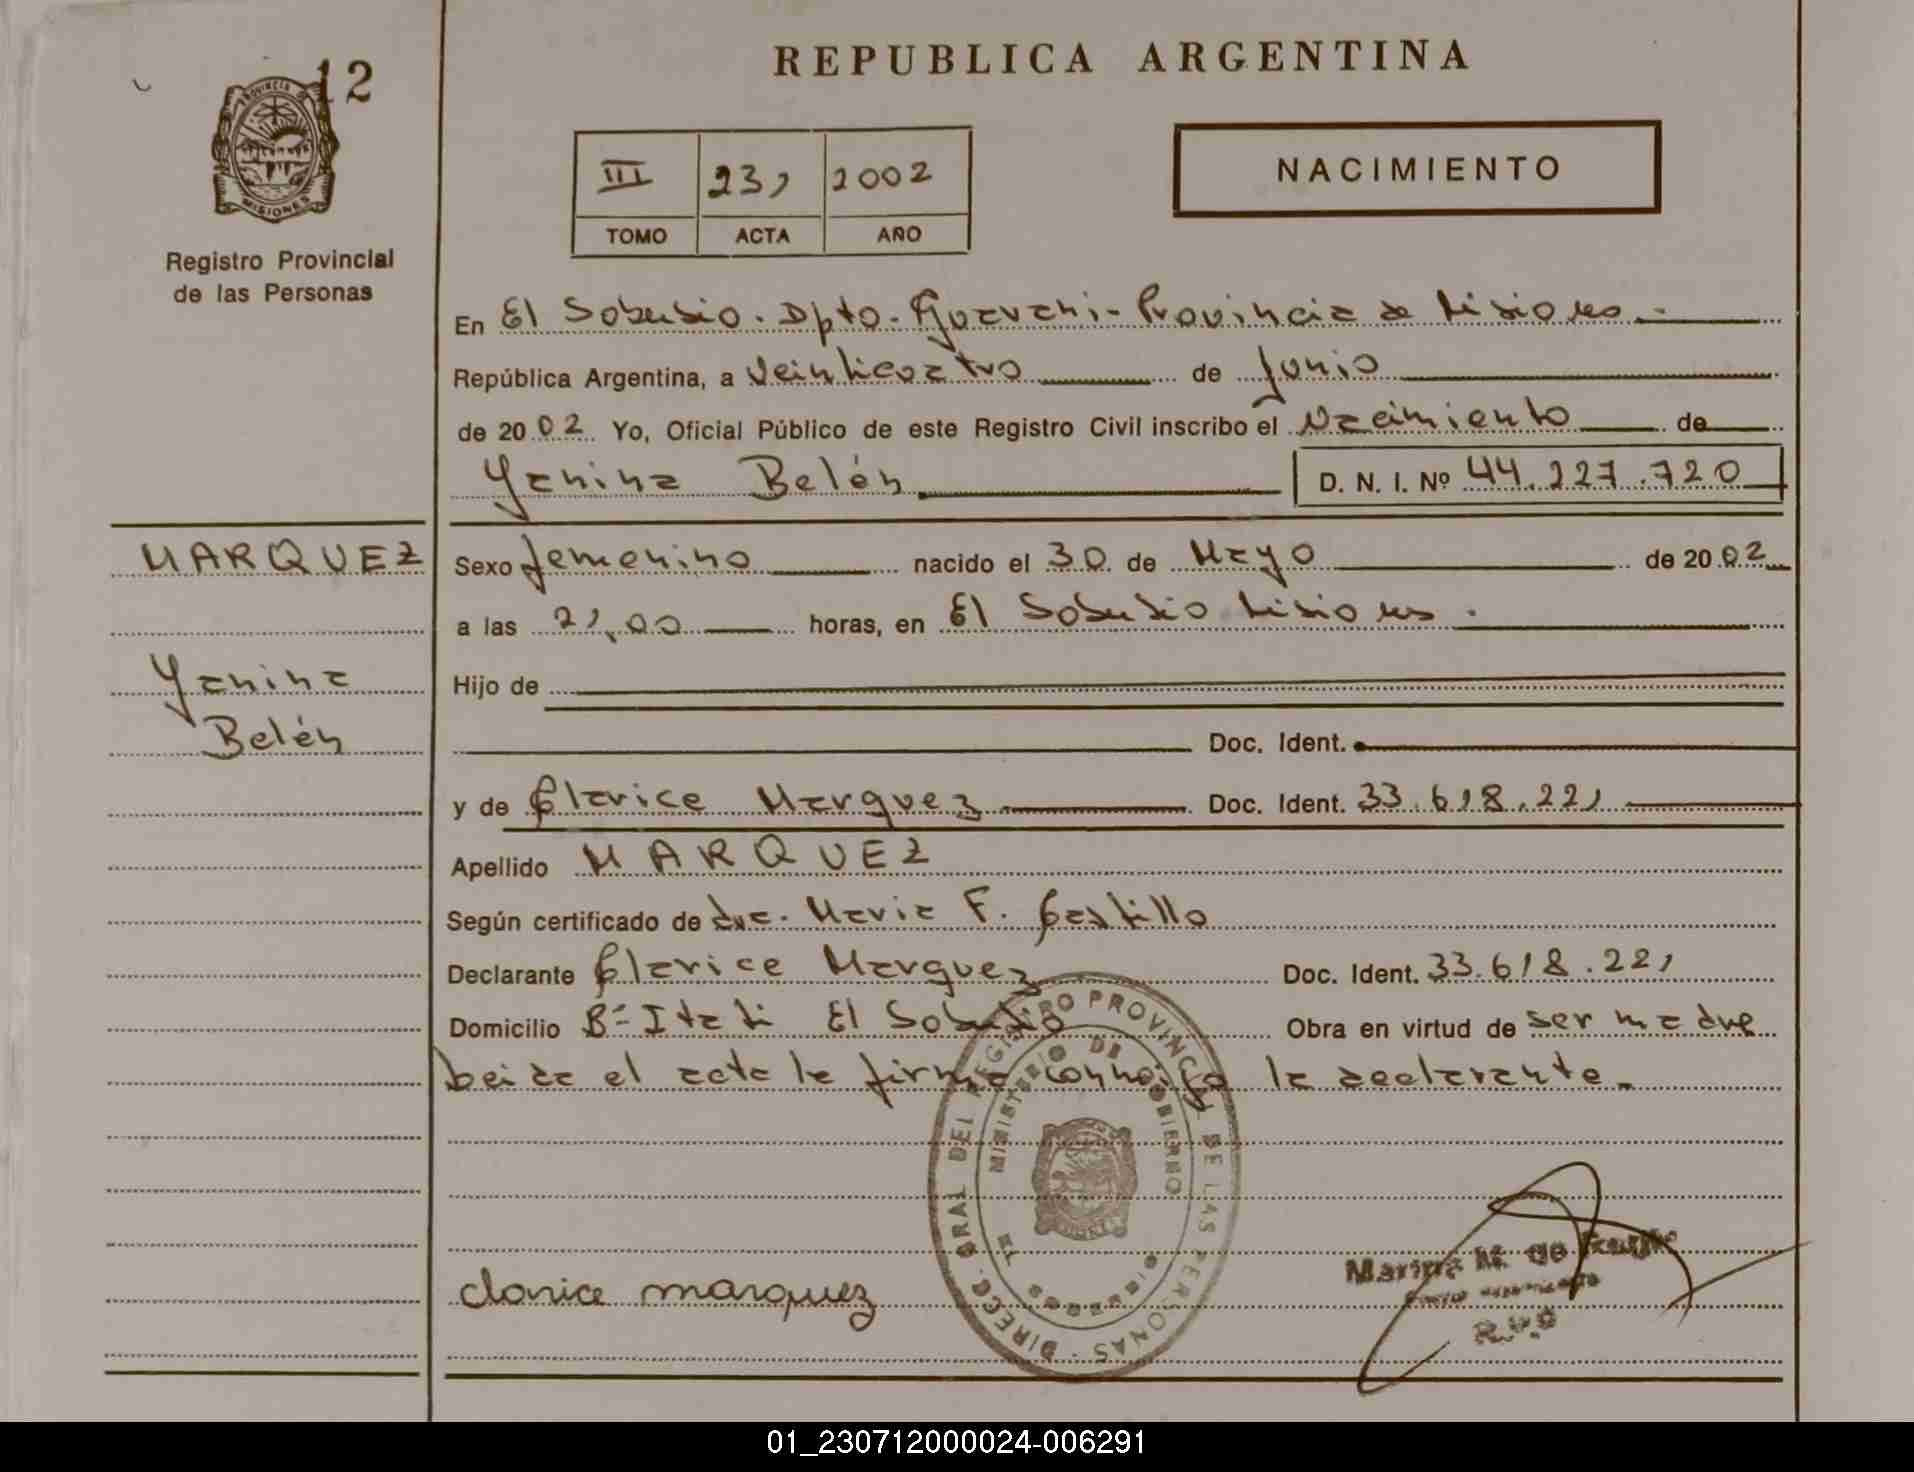 12
PROVINCIA DE
MISIONES
Registro Provincial
de las Personas
REPUBLICA ARGENTINA
III 231 2002
TOMO ACTA AÑO
NACIMIENTO
En El Soberbio. Dpto. Guarani - Provincia de Misiones.-
República Argentina, a veinticuatro de Junio
de 2002 Yo, Oficial Público de este Registro Civil inscribo el Nacimiento de
Yanina Belén D. N. I. Nº 44.227.720
MARQUEZ
Yanina
Belén
Sexo femenino nacido el 30 de Mayo de 2002
a las 21,00 horas, en El Soberbio Misiones.
Hijo de
Doc. Ident.
y de Clarice Marquez Doc. Ident. 33.618.221
Apellido MARQUEZ
Según certificado de dra. Maria F. Castillo
Declarante Clarice Marquez Doc. Ident. 33.618.221
Domicilio Bº Itati El Soberbio Obra en virtud de ser madre
Leida el acta la firma conmigo la declarante.-
DIRECC. GRAL DEL REGISTRO PROVINCIAL DE LAS PERSONAS
MINISTERIO DE GOBIERNO
MISIONES
clarice marquez
Marina M. de
01_230712000024-006291